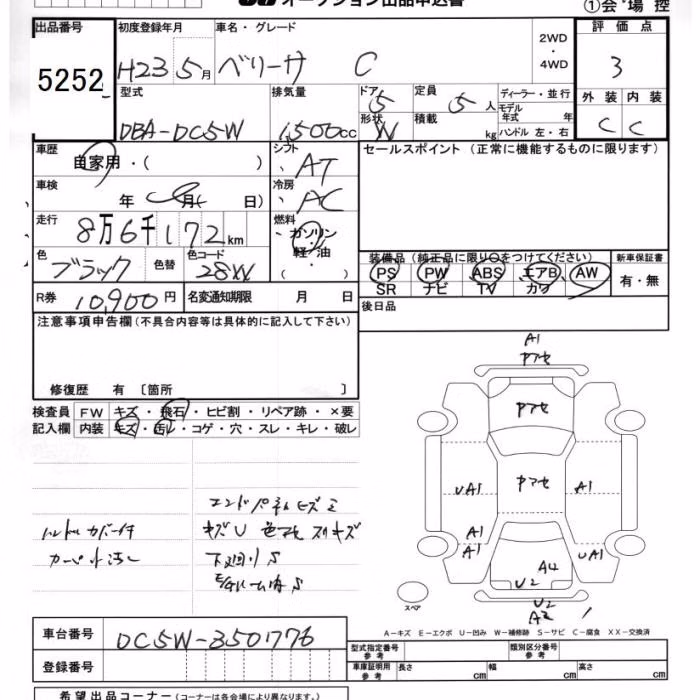 オークション出品申込書 ①会場控
出品番号 初度登録年月 車名・グレード 2WD・4WD 評価点
5252 H23 5月 ベリーサ C 3
型式 排気量 ドア 5 定員 5人 ディーラー・並行 外装 内装
DBA-DC5W 1,500cc 形状 W 積載 kg モデル年式 年 C C
ハンドル 左・右
車歴 自家用・( ) シフト AT セールスポイント (正常に機能するものに限ります)
車検 年 月( 日) 冷房 AC
走行 8万6千172km 燃料 ガソリン・軽油 ( )
色 ブラック 色替 色コード 28W 装備品 (純正品に限り○をつけてください) 新車保証書
PS PW ABS エアB AW 有・無
SR ナビ TV カワ
R券 10,900円 名変通知期限 月 日 後日品
注意事項申告欄(不具合内容等は具体的に記入して下さい)
修復歴 有 〔箇所 〕
検査員 FW キズ・飛石・ヒビ割・リペア跡・×要
記入欄 内装 キズ・汚レ・コゲ・穴・スレ・キレ・破レ
A1
P7セ
P7セ
P7セ
UA1 A1
A1
A1 UA1
A4
U2
U2
A2
スペア
ハンドルカバー付
カーペット汚レ
キズU 色アセ スリキズ
下廻りS
A-キズ E-エクボ U-凹み W-補修跡 S-サビ C-腐食 XX-交換済
車台番号 DC5W-3501776
登録番号
型式指定番号 参考 類別区分番号 参考
車庫証明用 参考 長さ cm 幅 cm 高さ cm
希望出品コーナー (コーナーは各会場により異なります。)